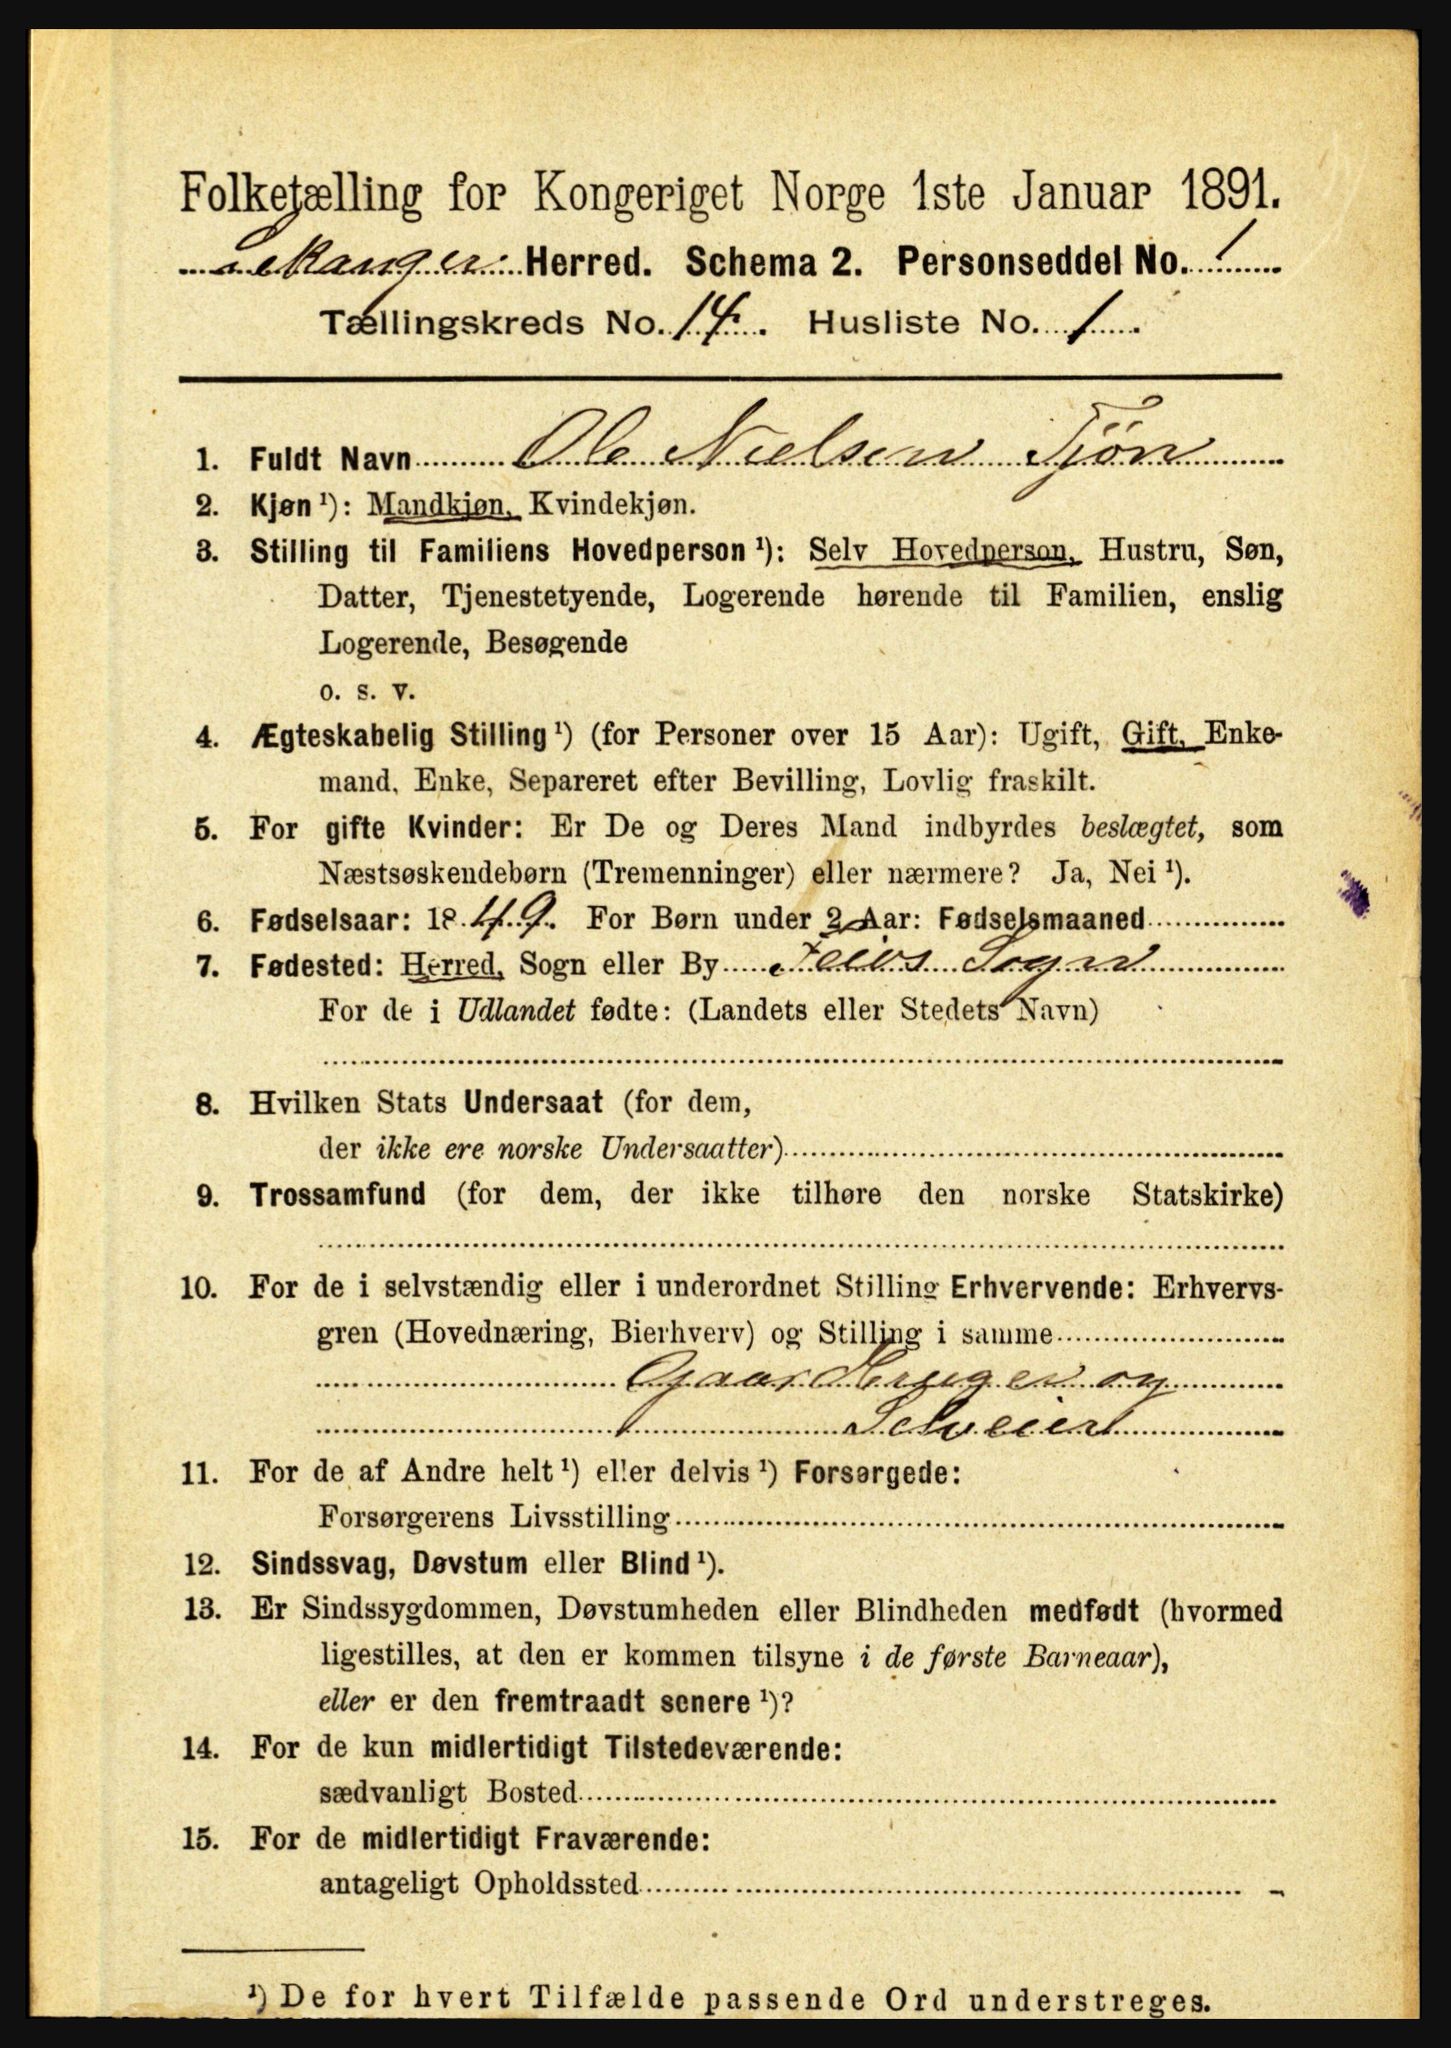 Folketælling for Kongeriget Norge 1ste Januar 1891.
Lekanger Herred. Schema 2. Personseddel No. 1
Tællingskreds No. 14. Husliste No. 1.
1. Fuldt Navn Ole Nielsen Tjøn
2. Kjøn ¹): Mandkjøn, Kvindekjøn.
3. Stilling til Familiens Hovedperson ¹): Selv Hovedperson, Hustru, Søn,
Datter, Tjenestetyende, Logerende hørende til Familien, enslig
Logerende, Besøgende
o. s. v.
4. Ægteskabelig Stilling ¹) (for Personer over 15 Aar): Ugift, Gift, Enke-
mand, Enke, Separeret efter Bevilling, Lovlig fraskilt.
5. For gifte Kvinder: Er De og Deres Mand indbyrdes beslægtet, som
Næstsøskendebørn (Tremenninger) eller nærmere? Ja, Nei ¹).
6. Fødselsaar: 1849. For Børn under 2 Aar: Fødselsmaaned
7. Fødested: Herred, Sogn eller By Feios Sogn
For de i Udlandet fødte: (Landets eller Stedets Navn)
8. Hvilken Stats Undersaat (for dem,
der ikke ere norske Undersaatter)
9. Trossamfund (for dem, der ikke tilhøre den norske Statskirke)
10. For de i selvstændig eller i underordnet Stilling Erhvervende: Erhvervs-
gren (Hovednæring, Bierhverv) og Stilling i samme
Gaardbruger og
Selveier
11. For de af Andre helt ¹) eller delvis ¹) Forsørgede:
Forsørgerens Livsstilling
12. Sindssvag, Døvstum eller Blind ¹).
13. Er Sindssygdommen, Døvstumheden eller Blindheden medfødt (hvormed
ligestilles, at den er kommen tilsyne i de første Barneaar),
eller er den fremtraadt senere ¹)?
14. For de kun midlertidigt Tilstedeværende:
sædvanligt Bosted
15. For de midlertidigt Fraværende:
antageligt Opholdssted
¹) De for hvert Tilfælde passende Ord understreges.